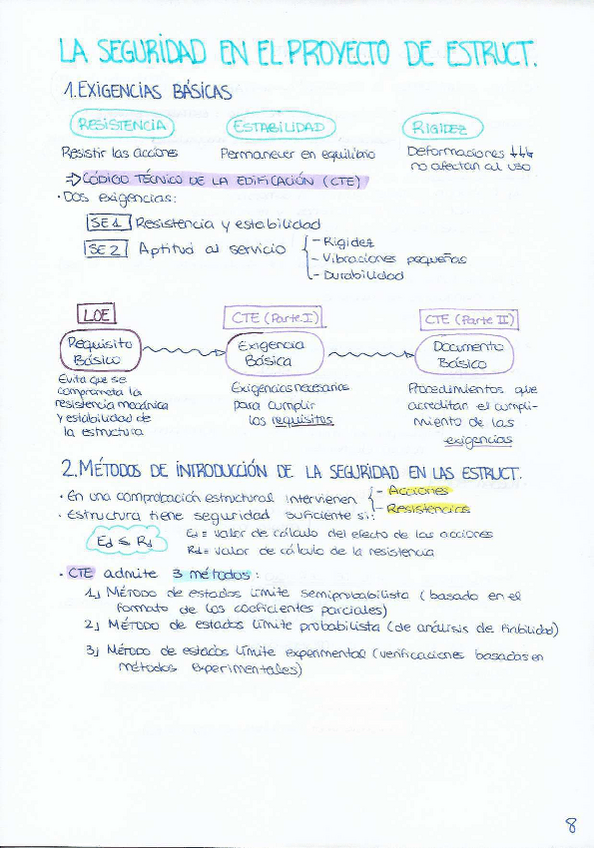 LA SEGURIDAD EN EL PROYECTO DE ESTRUCT.
1. EXIGENCIAS BÁSICAS
RESISTENCIA ESTABILIDAD RIGIDEZ
Resistir las acciones Permanecer en equilibrio Deformaciones ↓↓↓
no afectan al uso
⇒ CÓDIGO TÉCNICO DE LA EDIFICACIÓN (CTE)
· Dos exigencias:
SE 1 Resistencia y estabilidad
SE 2 Aptitud al servicio { - Rigidez
- Vibraciones pequeñas
- Durabilidad
LOE CTE (Parte I) CTE (Parte II)
Requisito Básico → Exigencia Básica → Documento Básico
Evita que se
comprometa la
resistencia mecánica
y estabilidad de
la estructura
Exigencias necesarias
para cumplir
los requisitos
Procedimientos que
acreditan el cumpli-
miento de las
exigencias
2. MÉTODOS DE INTRODUCCIÓN DE LA SEGURIDAD EN LAS ESTRUCT.
· En una comprobación estructural intervienen { - Acciones
- Resistencias
· Estructura tiene seguridad suficiente si:
Ed ≤ Rd
Ed = valor de cálculo del efecto de las acciones
Rd = valor de cálculo de la resistencia
· CTE admite 3 métodos:
1) Método de estados límite semiprobabilista (basado en el
formato de los coeficientes parciales)
2) Método de estados límite probabilista (de análisis de fiabilidad)
3) Método de estados límite experimental (verificaciones basadas en
métodos experimentales)
8